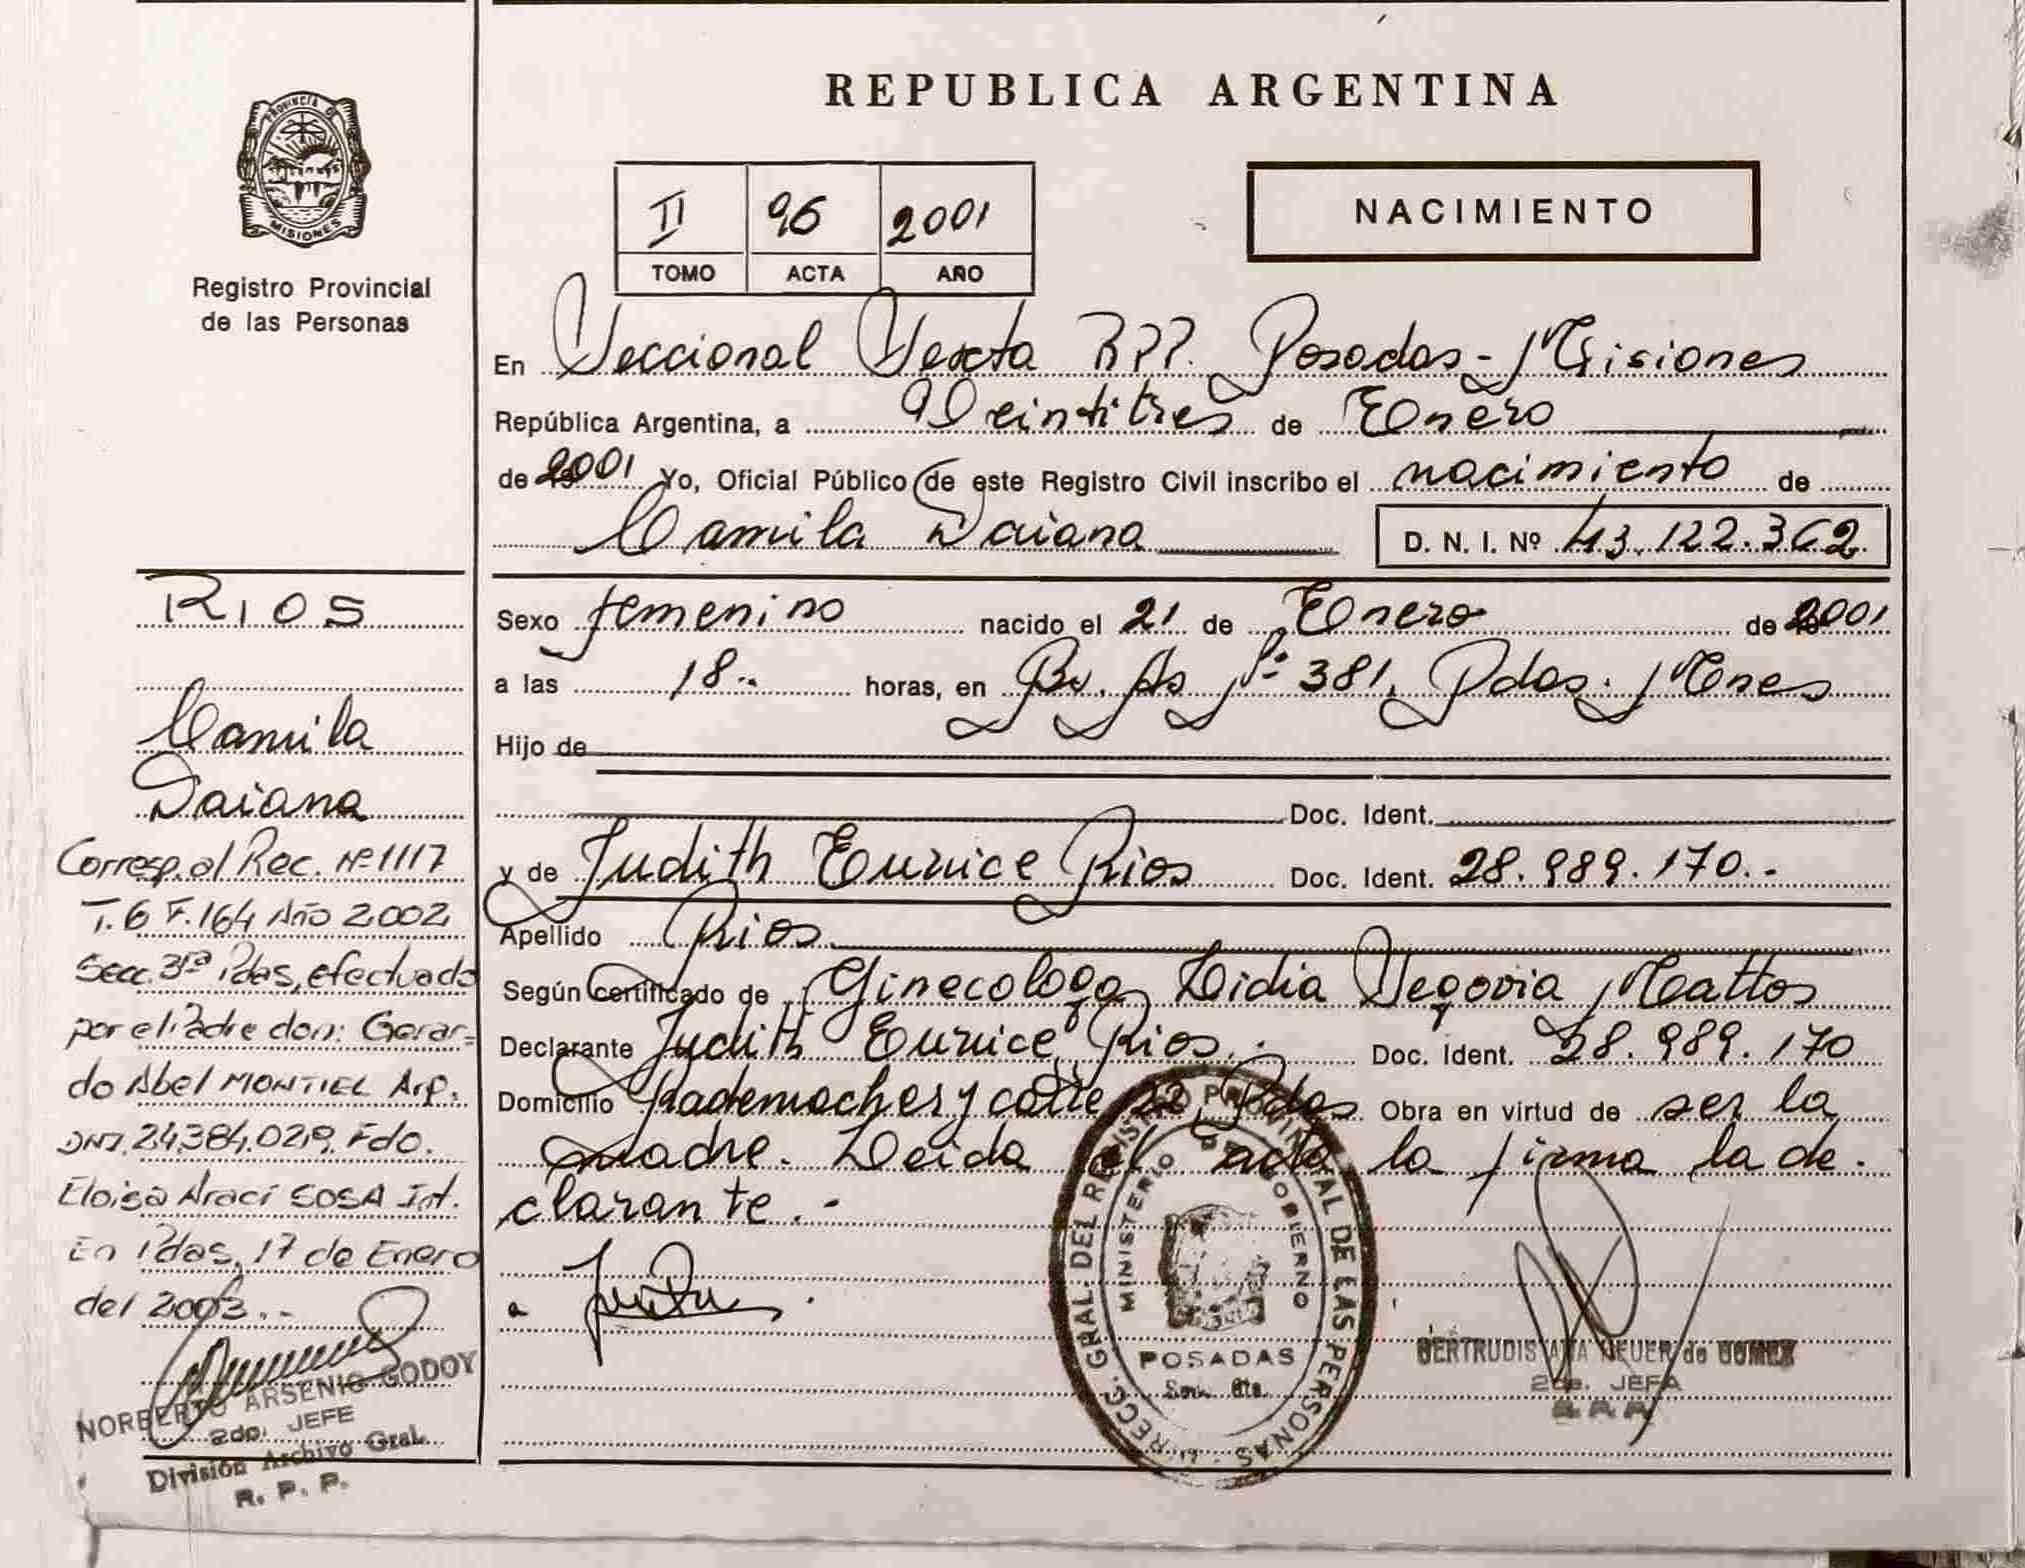 REPUBLICA ARGENTINA
PROVINCIA DE
MISIONES
Registro Provincial
de las Personas
II 96 2001
TOMO ACTA AÑO
NACIMIENTO
En Seccional Sexta RPP. Posadas - Misiones
República Argentina, a Veintitres de Enero
de 2001 Yo, Oficial Público de este Registro Civil inscribo el nacimiento de
Camila Daiana D. N. I. Nº 43.122.362
Sexo femenino nacido el 21 de Enero de 2001
a las 18.. horas, en Bs. As Nº 381, Pdas. Mnes
Hijo de
Doc. Ident.
y de Judith Eunice Rios Doc. Ident. 28.989.170.-
Apellido Rios
Según Certificado de Ginecologa Lidia Segovia Mattos
Declarante Judith Eunice Rios.- Doc. Ident. 28.989.170
Domicilio Rademacher y calle 22, Pdas Obra en virtud de ser la
Madre. Leida el acta la firma la de-
clarante.-
RIOS
Camila
Daiana
Corresp. al Rec. Nº 1117
T. 6 F. 164 Año 2002
Secc. 3ra Pdas, efectuado
por el Padre don: Gerar=
do Abel MONTIEL Arg.
DNI. 24.384.029. Fdo.
Eloisa Araci SOSA Int.
En Pdas, 17 de Enero
del 2003.-
NORBERTO ARSENIO GODOY
2do. JEFE
División Archivo Gral.
R. P. P.
DIRECC. GRAL. DEL REGISTRO PROVINCIAL DE LAS PERSONAS
MINISTERIO DE GOBIERNO
POSADAS
GERTRUDIS NEUER de GOMEZ
2da. JEFA
R. P. P.